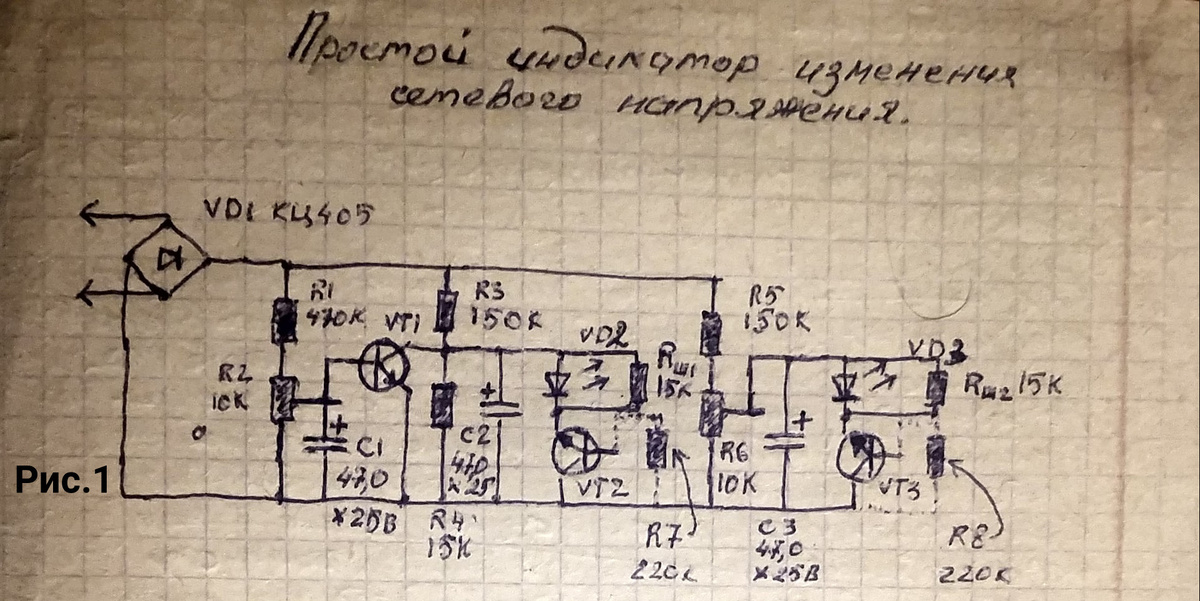 Простой индикатор изменения
сетевого напряжения.
VD1 КЦ405
R1
470К
VT1
R3
150К
R5
150К
VD2
VD3
R2
10К
Rш1
15К
Rш2 15К
C1
47,0
×25В
C2
47,0
×25
R6
10К
VT2
VT3
Рис.1
R4
15К
R7
220к
C3
47,0
×25В
R8
220К